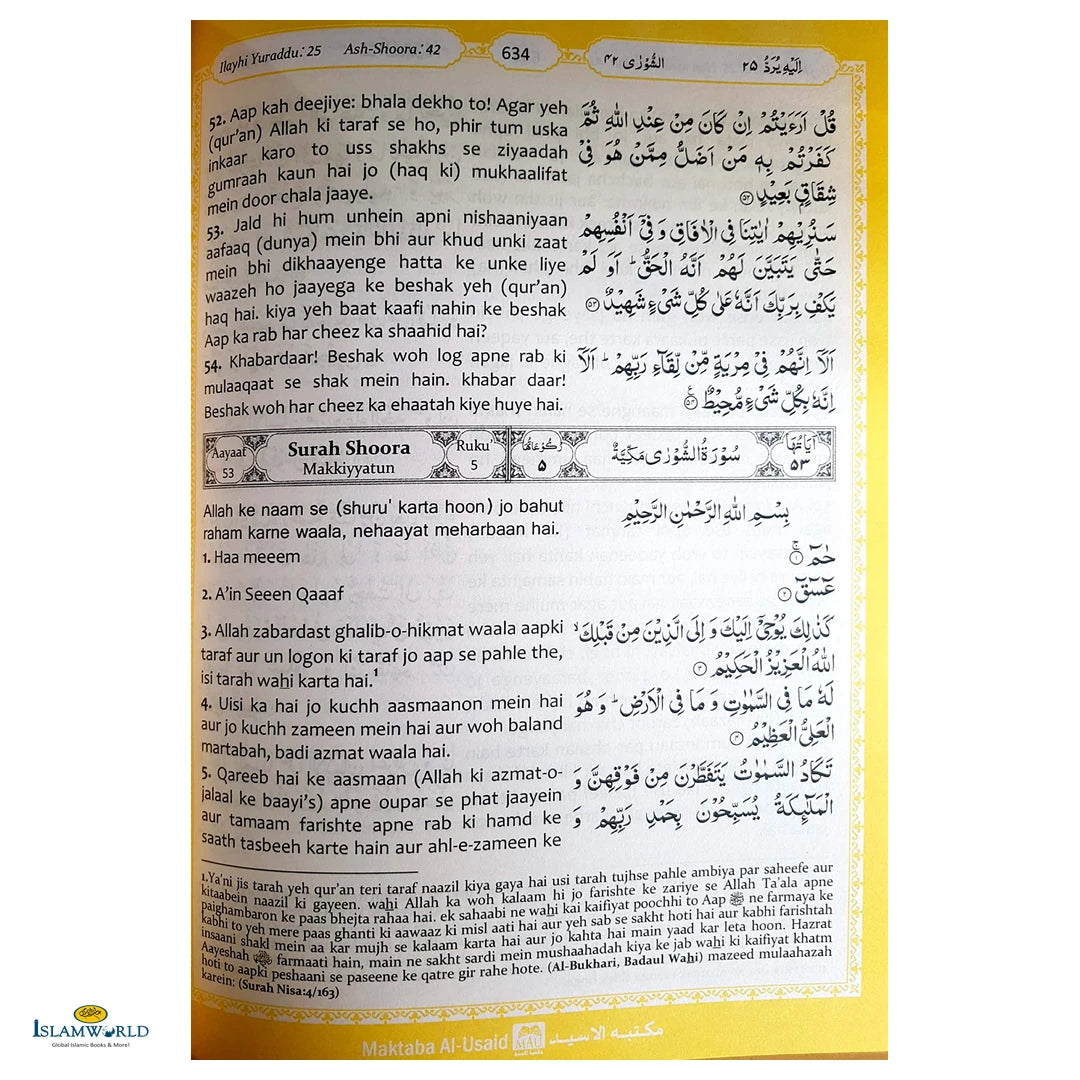 Ilayhi Yuraddu: 25 Ash-Shoora: 42 634 الشُّوْرٰى ٤٢ اِلَيْهِ يُرَدُّ ٢٥
52. Aap kah deejiye: bhala dekho to! Agar yeh
(qur'an) Allah ki taraf se ho, phir tum uska
inkaar karo to uss shakhs se ziyaadah
gumraah kaun hai jo (haq ki) mukhaalifat
mein door chala jaaye.
قُلْ اَرَءَيْتُمْ اِنْ كَانَ مِنْ عِنْدِ اللّٰهِ ثُمَّ
كَفَرْتُمْ بِهٖ مَنْ اَضَلُّ مِمَّنْ هُوَ فِيْ
شِقَاقٍۭ بَعِيْدٍ ۝٥٢
53. Jald hi hum unhein apni nishaaniyaan
aafaaq (dunya) mein bhi aur khud unki zaat
mein bhi dikhaayenge hatta ke unke liye
waazeh ho jaayega ke beshak yeh (qur'an)
haq hai. kiya yeh baat kaafi nahin ke beshak
Aap ka rab har cheez ka shaahid hai?
سَنُرِيْهِمْ اٰيٰتِنَا فِي الْاٰفَاقِ وَ فِيْٓ اَنْفُسِهِمْ
حَتّٰى يَتَبَيَّنَ لَهُمْ اَنَّهُ الْحَقُّ ؕ اَوَ لَمْ
يَكْفِ بِرَبِّكَ اَنَّهٗ عَلٰى كُلِّ شَيْءٍ شَهِيْدٌ ۝٥٣
54. Khabardaar! Beshak woh log apne rab ki
mulaaqaat se shak mein hain. khabar daar!
Beshak woh har cheez ka ehaatah kiye huye hai.
اَلَاۤ اِنَّهُمْ فِيْ مِرْيَةٍ مِّنْ لِّقَآءِ رَبِّهِمْ ؕ اَلَاۤ
اِنَّهٗ بِكُلِّ شَيْءٍ مُّحِيْطٌ ۝٥٤
Aayaat 53
Surah Shoora
Makkiyyatun
Ruku' 5
رُكُوْعَاتُهَا ٥
سُوْرَةُ الشُّوْرٰى مَكِّيَّةٌ
اٰيَاتُهَا ٥٣
Allah ke naam se (shuru' karta hoon) jo bahut
raham karne waala, nehaayat meharbaan hai.
بِسْمِ اللّٰهِ الرَّحْمٰنِ الرَّحِيْمِ
1. Haa meeem
حٰمٓ ۝١
2. A'in Seeen Qaaaf
عٓسٓقٓ ۝٢
3. Allah zabardast ghalib-o-hikmat waala aapki
taraf aur un logon ki taraf jo aap se pahle the,
isi tarah wahi karta hai.¹
كَذٰلِكَ يُوْحِيْٓ اِلَيْكَ وَ اِلَى الَّذِيْنَ مِنْ قَبْلِكَ ۙ
اللّٰهُ الْعَزِيْزُ الْحَكِيْمُ ۝٣
4. Uisi ka hai jo kuchh aasmaanon mein hai
aur jo kuchh zameen mein hai aur woh baland
martabah, badi azmat waala hai.
لَهٗ مَا فِي السَّمٰوٰتِ وَ مَا فِي الْاَرْضِ ؕ وَ هُوَ
الْعَلِيُّ الْعَظِيْمُ ۝٤
5. Qareeb hai ke aasmaan (Allah ki azmat-o-
jalaal ke baayi's) apne oupar se phat jaayein
aur tamaam farishte apne rab ki hamd ke
saath tasbeeh karte hain aur ahl-e-zameen ke
تَكَادُ السَّمٰوٰتُ يَتَفَطَّرْنَ مِنْ فَوْقِهِنَّ وَ
الْمَلٰٓئِكَةُ يُسَبِّحُوْنَ بِحَمْدِ رَبِّهِمْ وَ
1.Ya'ni jis tarah yeh qur'an teri taraf naazil kiya gaya hai usi tarah tujhse pahle ambiya par saheefe aur
kitaabein naazil ki gayeen. wahi Allah ka woh kalaam hi jo farishte ke zariye se Allah Ta'ala apne
paighambaron ke paas bhejta rahaa hai. ek sahaabi ne wahi kai kaifiyat poochhi to Aap ﷺ ne farmaya ke
kabhi to yeh mere paas ghanti ki aawaaz ki misl aati hai aur yeh sab se sakht hoti hai aur kabhi farishtah
insaani shakl mein aa kar mujh se kalaam karta hai aur jo kahta hai main yaad kar leta hoon. Hazrat
Aayeshah farmaati hain, main ne sakht sardi mein mushaahadah kiya ke jab wahi ki kaifiyat khatm
hoti to aapki peshaani se paseene ke qatre gir rahe hote. (Al-Bukhari, Badaul Wahi) mazeed mulaahazah
karein: (Surah Nisa:4/163)
Maktaba Al-Usaid MAU مکتبہ الاسید
ISLAMWORLD
Global Islamic Books & More!